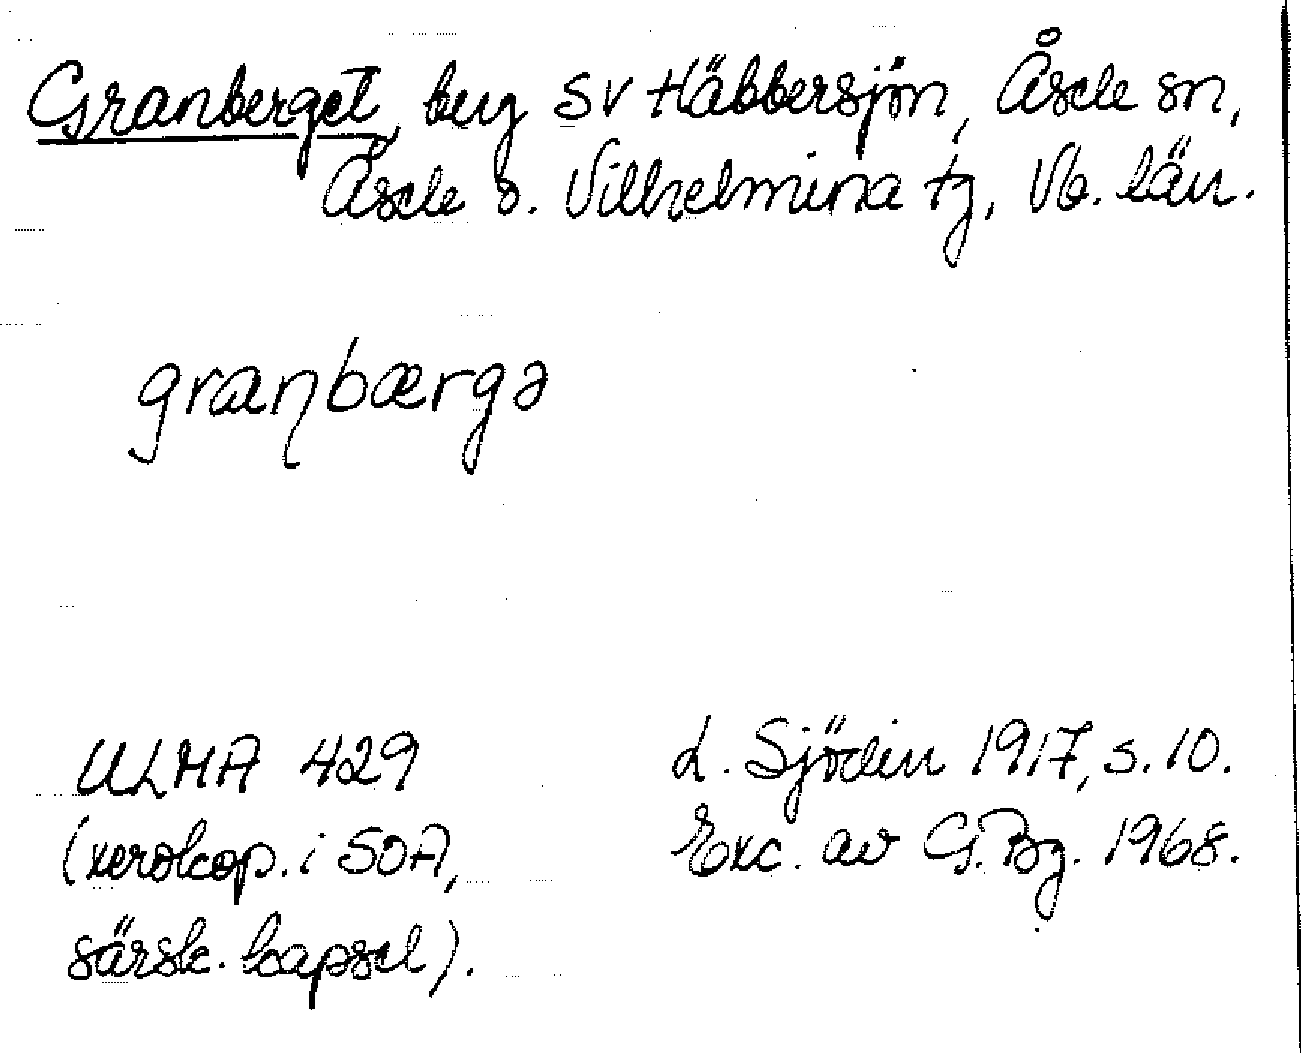 Granberget, by SV Häbbersjön, Åsele sn,
Åsele o. Vilhelmina tg, Vb. län.
granbærgə
ULMA 429
(xerokop. i SOA,
särsk. kapsel).
L. Sjödin 1917, s. 10.
Exc. av G. Bg. 1968.